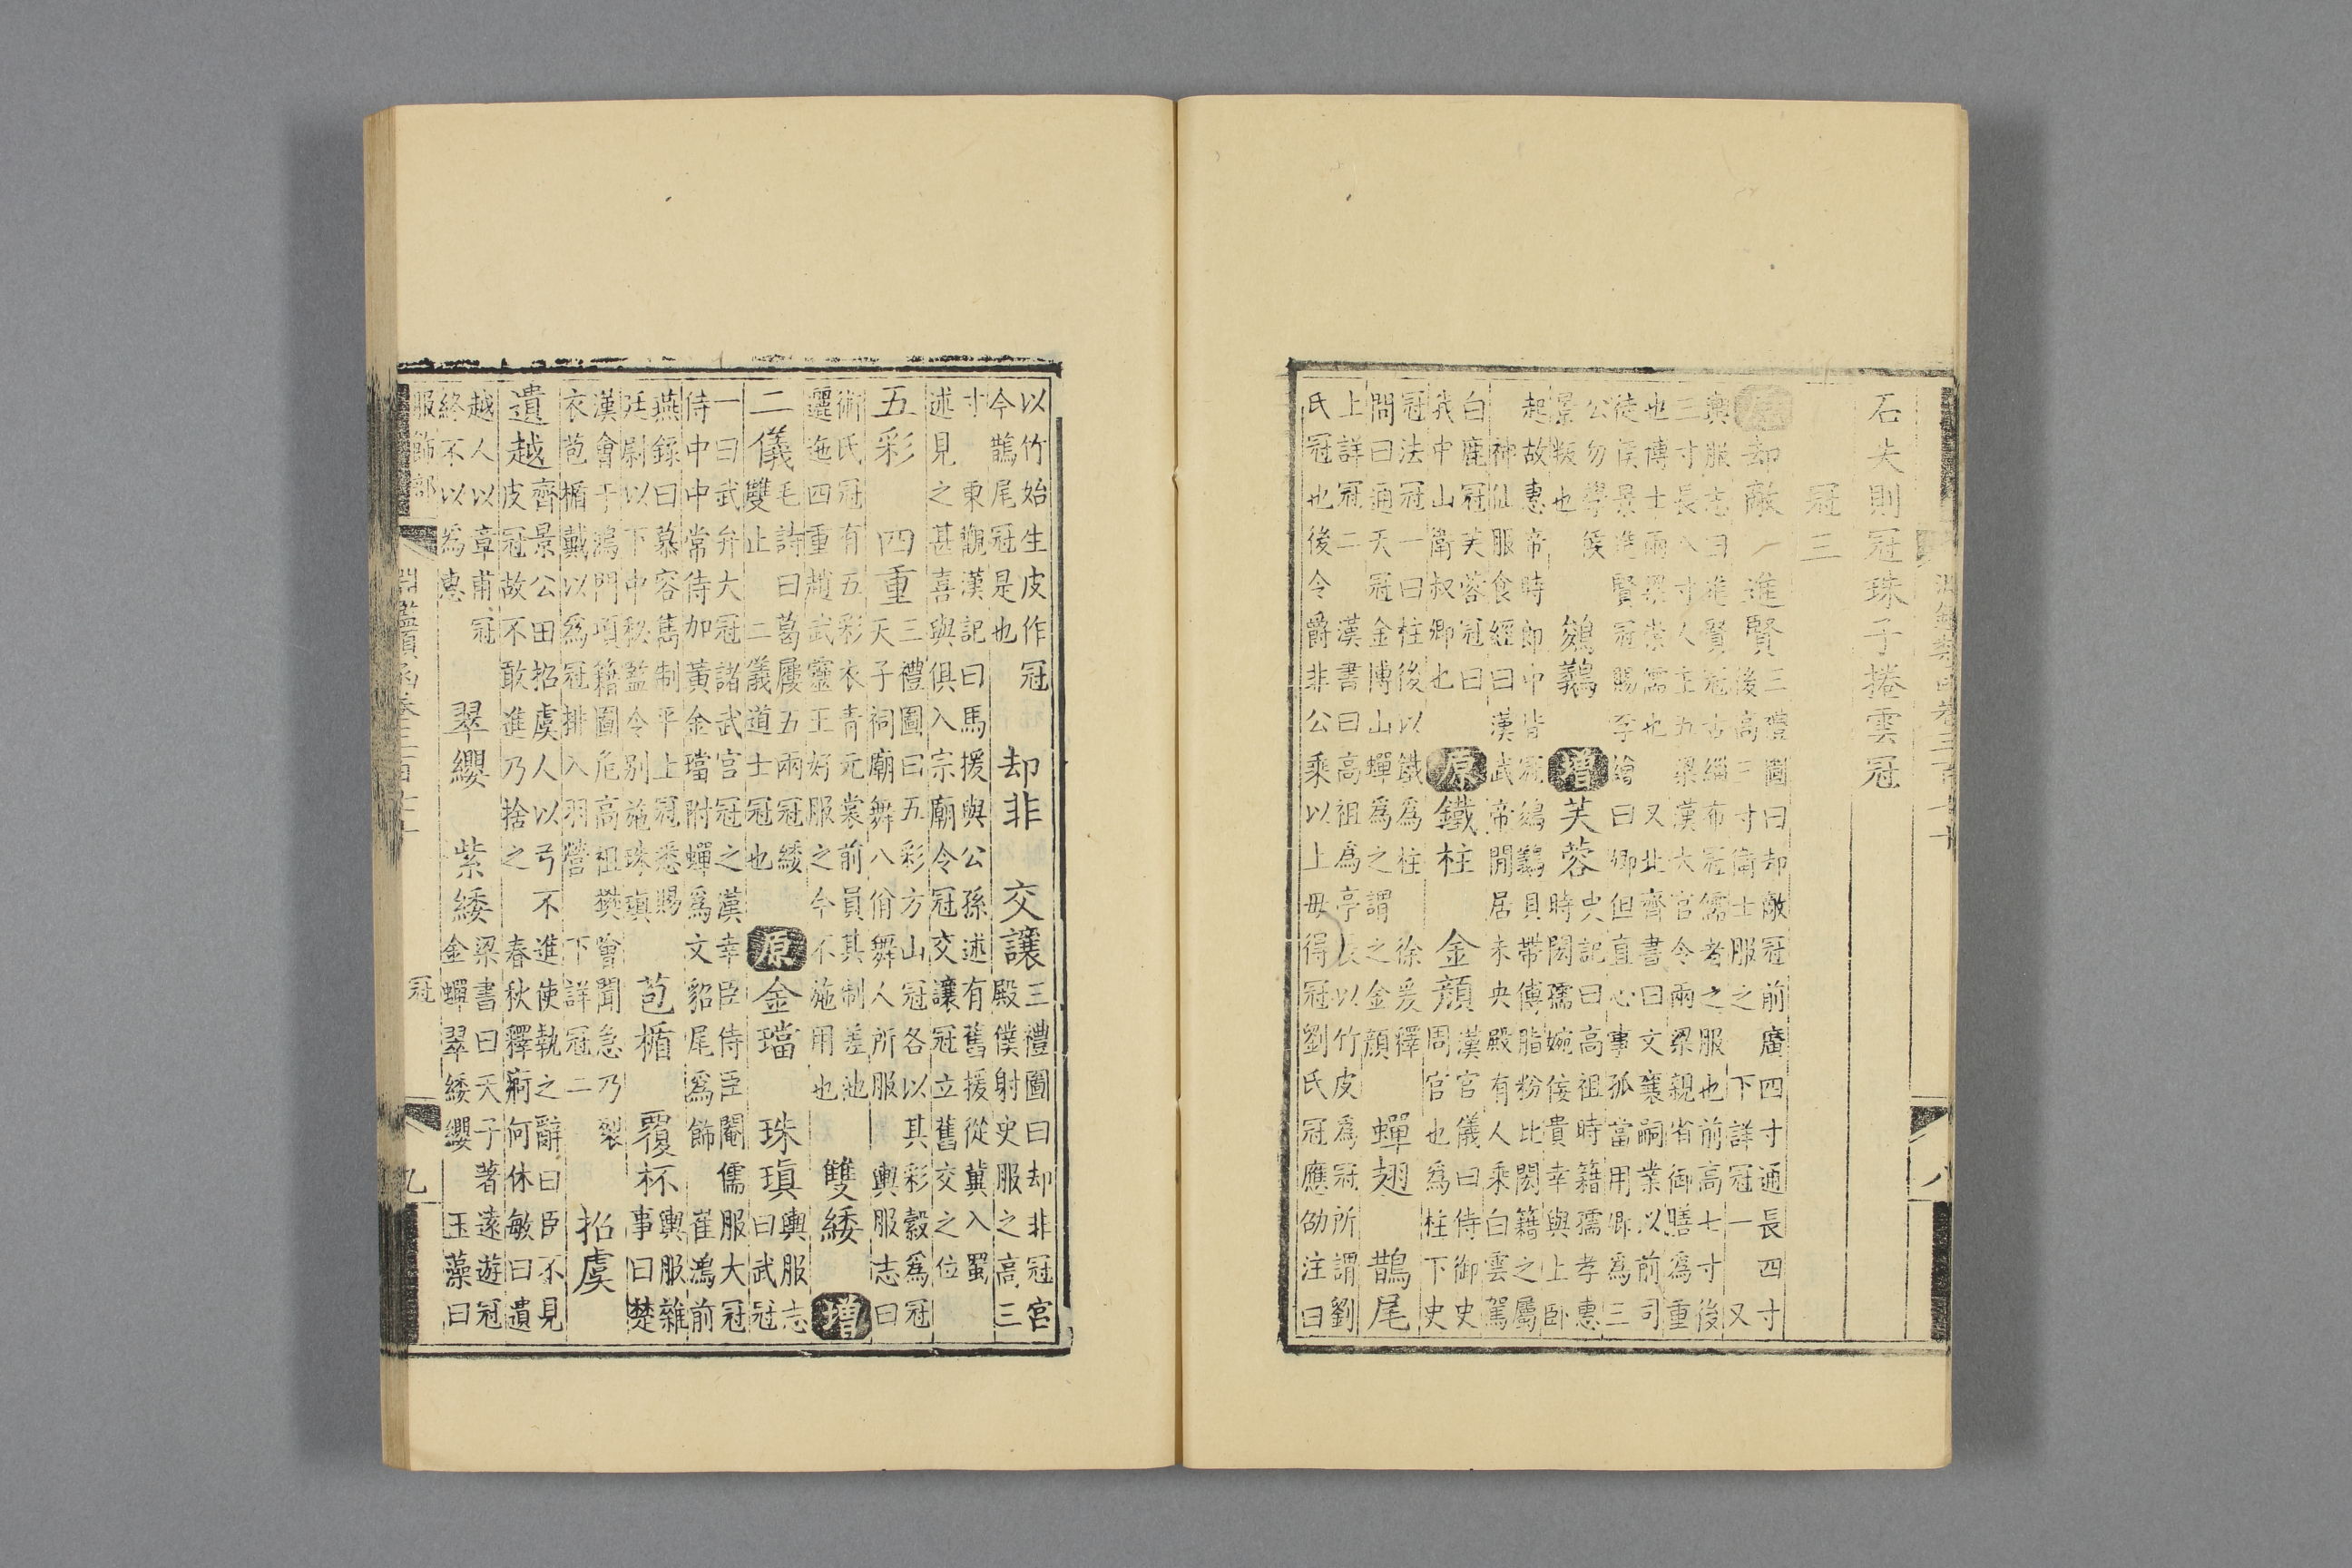 石夫則冠珠子捲雲冠
冠三
原 却敵 進賢
三禮圖曰却敵冠前廣四寸通長四寸
後高三寸衛士服之 下詳冠一 又
輿服志曰進賢冠古緇布冠儒者之服也前高七寸後
三寸長八寸人主五梁漢大官令兩梁親省御膳為重
也博士兩梁崇儒也 又北齊書曰文襄嗣業以前司
徒侯景進賢冠賜李繪曰卿但直心事孤當用卿為三
公勿學侯
景叛也
鵕鸃 增 芙蓉
史記曰高祖時籍孺孝惠
時閎孺婉佞貴幸與上臥
起故惠帝時郎中皆冠鵕鸃貝帶傅脂粉比閎籍之屬
神仙服食經曰漢武帝閒居未央殿有人乘白雲駕
白鹿冠芙蓉冠曰
我中山衛叔卿也
原 鐵柱 金顏
漢官儀曰侍御史
周官也為柱下史
冠法冠一曰柱後以鐵為柱 徐爰釋
問曰通天冠金博山蟬為之謂之金顏
蟬翅 鵲尾
上詳冠二 漢書曰高祖為亭長以竹皮為冠所謂劉
氏冠也後令爵非公乘以上毋得冠劉氏冠應劭注曰
以竹始生皮作冠
今鵲尾冠是也
却非 交讓
三禮圖曰却非冠宮
殿僕射史服之高三
寸 東觀漢記曰馬援與公孫述有舊援從冀入蜀
述見之甚喜與俱入宗廟令冠交讓冠立舊交之位
五彩 四重
三禮圖曰五彩方山冠各以其彩縠為冠
天子祠廟舞八佾舞人所服 輿服志曰
術氏冠有五彩衣青元裳前員其制差池
邐迤四重趙武靈王好服之今不施用也
雙緌 增
二儀
毛詩曰葛屨五兩冠緌
雙止 二儀道士冠也
原 金璫 珠瑱
輿服志
曰武冠
一曰武弁大冠諸武官冠之漢幸臣侍臣閹儒服大冠
侍中中常侍加黃金璫附蟬為文貂尾為飾 崔鴻前
燕錄曰慕容雋制平上冠悉賜
廷尉以下中秘監令別施珠瑱
苞楯 覆杯
輿服雜
事曰楚
漢會于鴻門項籍圖危高祖樊噲聞急乃裂
衣苞楯戴以為冠排入羽營 下詳冠二
招虞
遺越
齊景公田招虞人以弓不進使執之辭曰臣不見
皮冠故不敢進乃捨之 春秋釋痾何休敏曰遺
越人以章甫冠
終不以為惠
翠纓 紫緌
梁書曰天子著遠遊冠
金蟬翠緌纓 玉藻曰
服飾部 淵鑑類函卷三百七十 冠 九